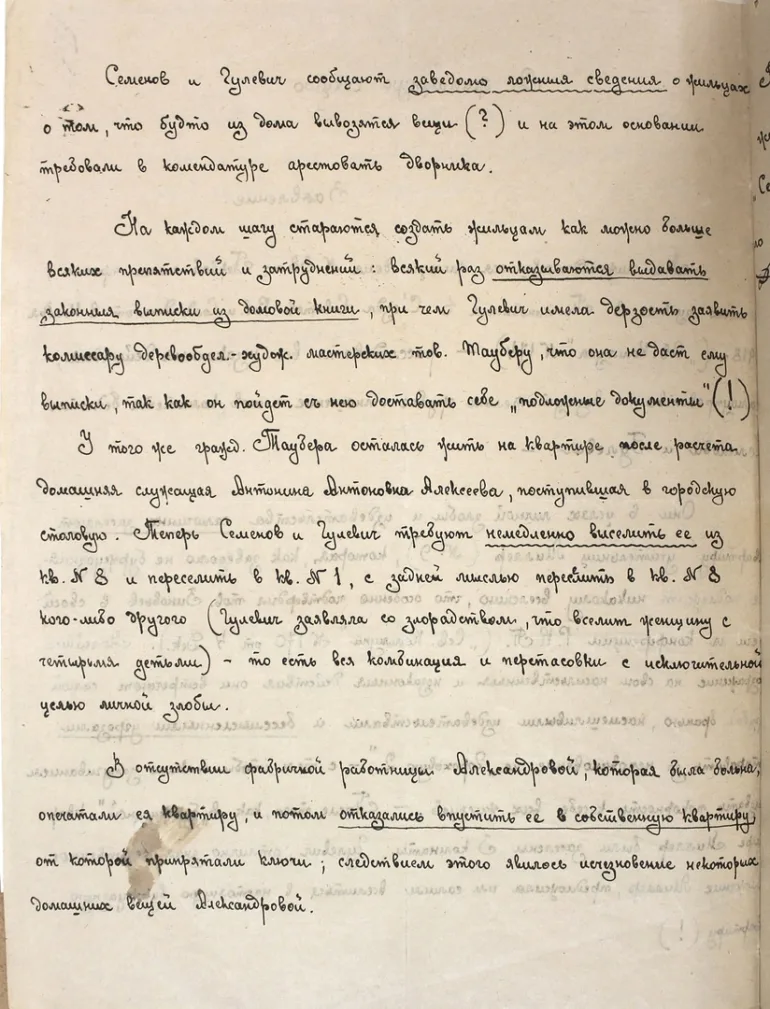 Семенов и Гулевич сообщают заведомо ложныя сведения о жильцах
о том, что будто из дома вывозятся вещи (?) и на этом основании
требовали в комендатуре арестовать дворника.
На каждом шагу стараются создать жильцам как можно больше
всяких препятствий и затруднений: всякий раз отказываются выдавать
законныя выписки из домовой книги, при чем Гулевич имела дерзость заявить
комиссару деревообдел.-худож. мастерских тов. Тауберу, что она не даст ему
выписки, так как он пойдет съ нею доставать себе „подложные документы" (!)
У того же гражд. Таубера осталась жить на квартире после расчета
домашняя служащая Антонина Антоновна Алексеева, поступившая в городскую
столовую. Теперь Семенов и Гулевич требуют немедленно выселить ее из
кв. N 8 и переселить в кв. N 1, с задней мыслью в кв. N 8
кого-либо другого (Гулевич заявляла со злорадством, что вселит женщину с
четырьмя детьми) - то есть вся комбинация и перетасовки с исключительной
целью личной злобы.
В отсутствии фабричной работницы Александровой, которая была больна,
опечатали ея квартиру, и потом отказались впустить ее в собственную квартиру,
от которой припрятали ключи; следствием этого явилось исчезновение некоторых
домашних вещей Александровой.